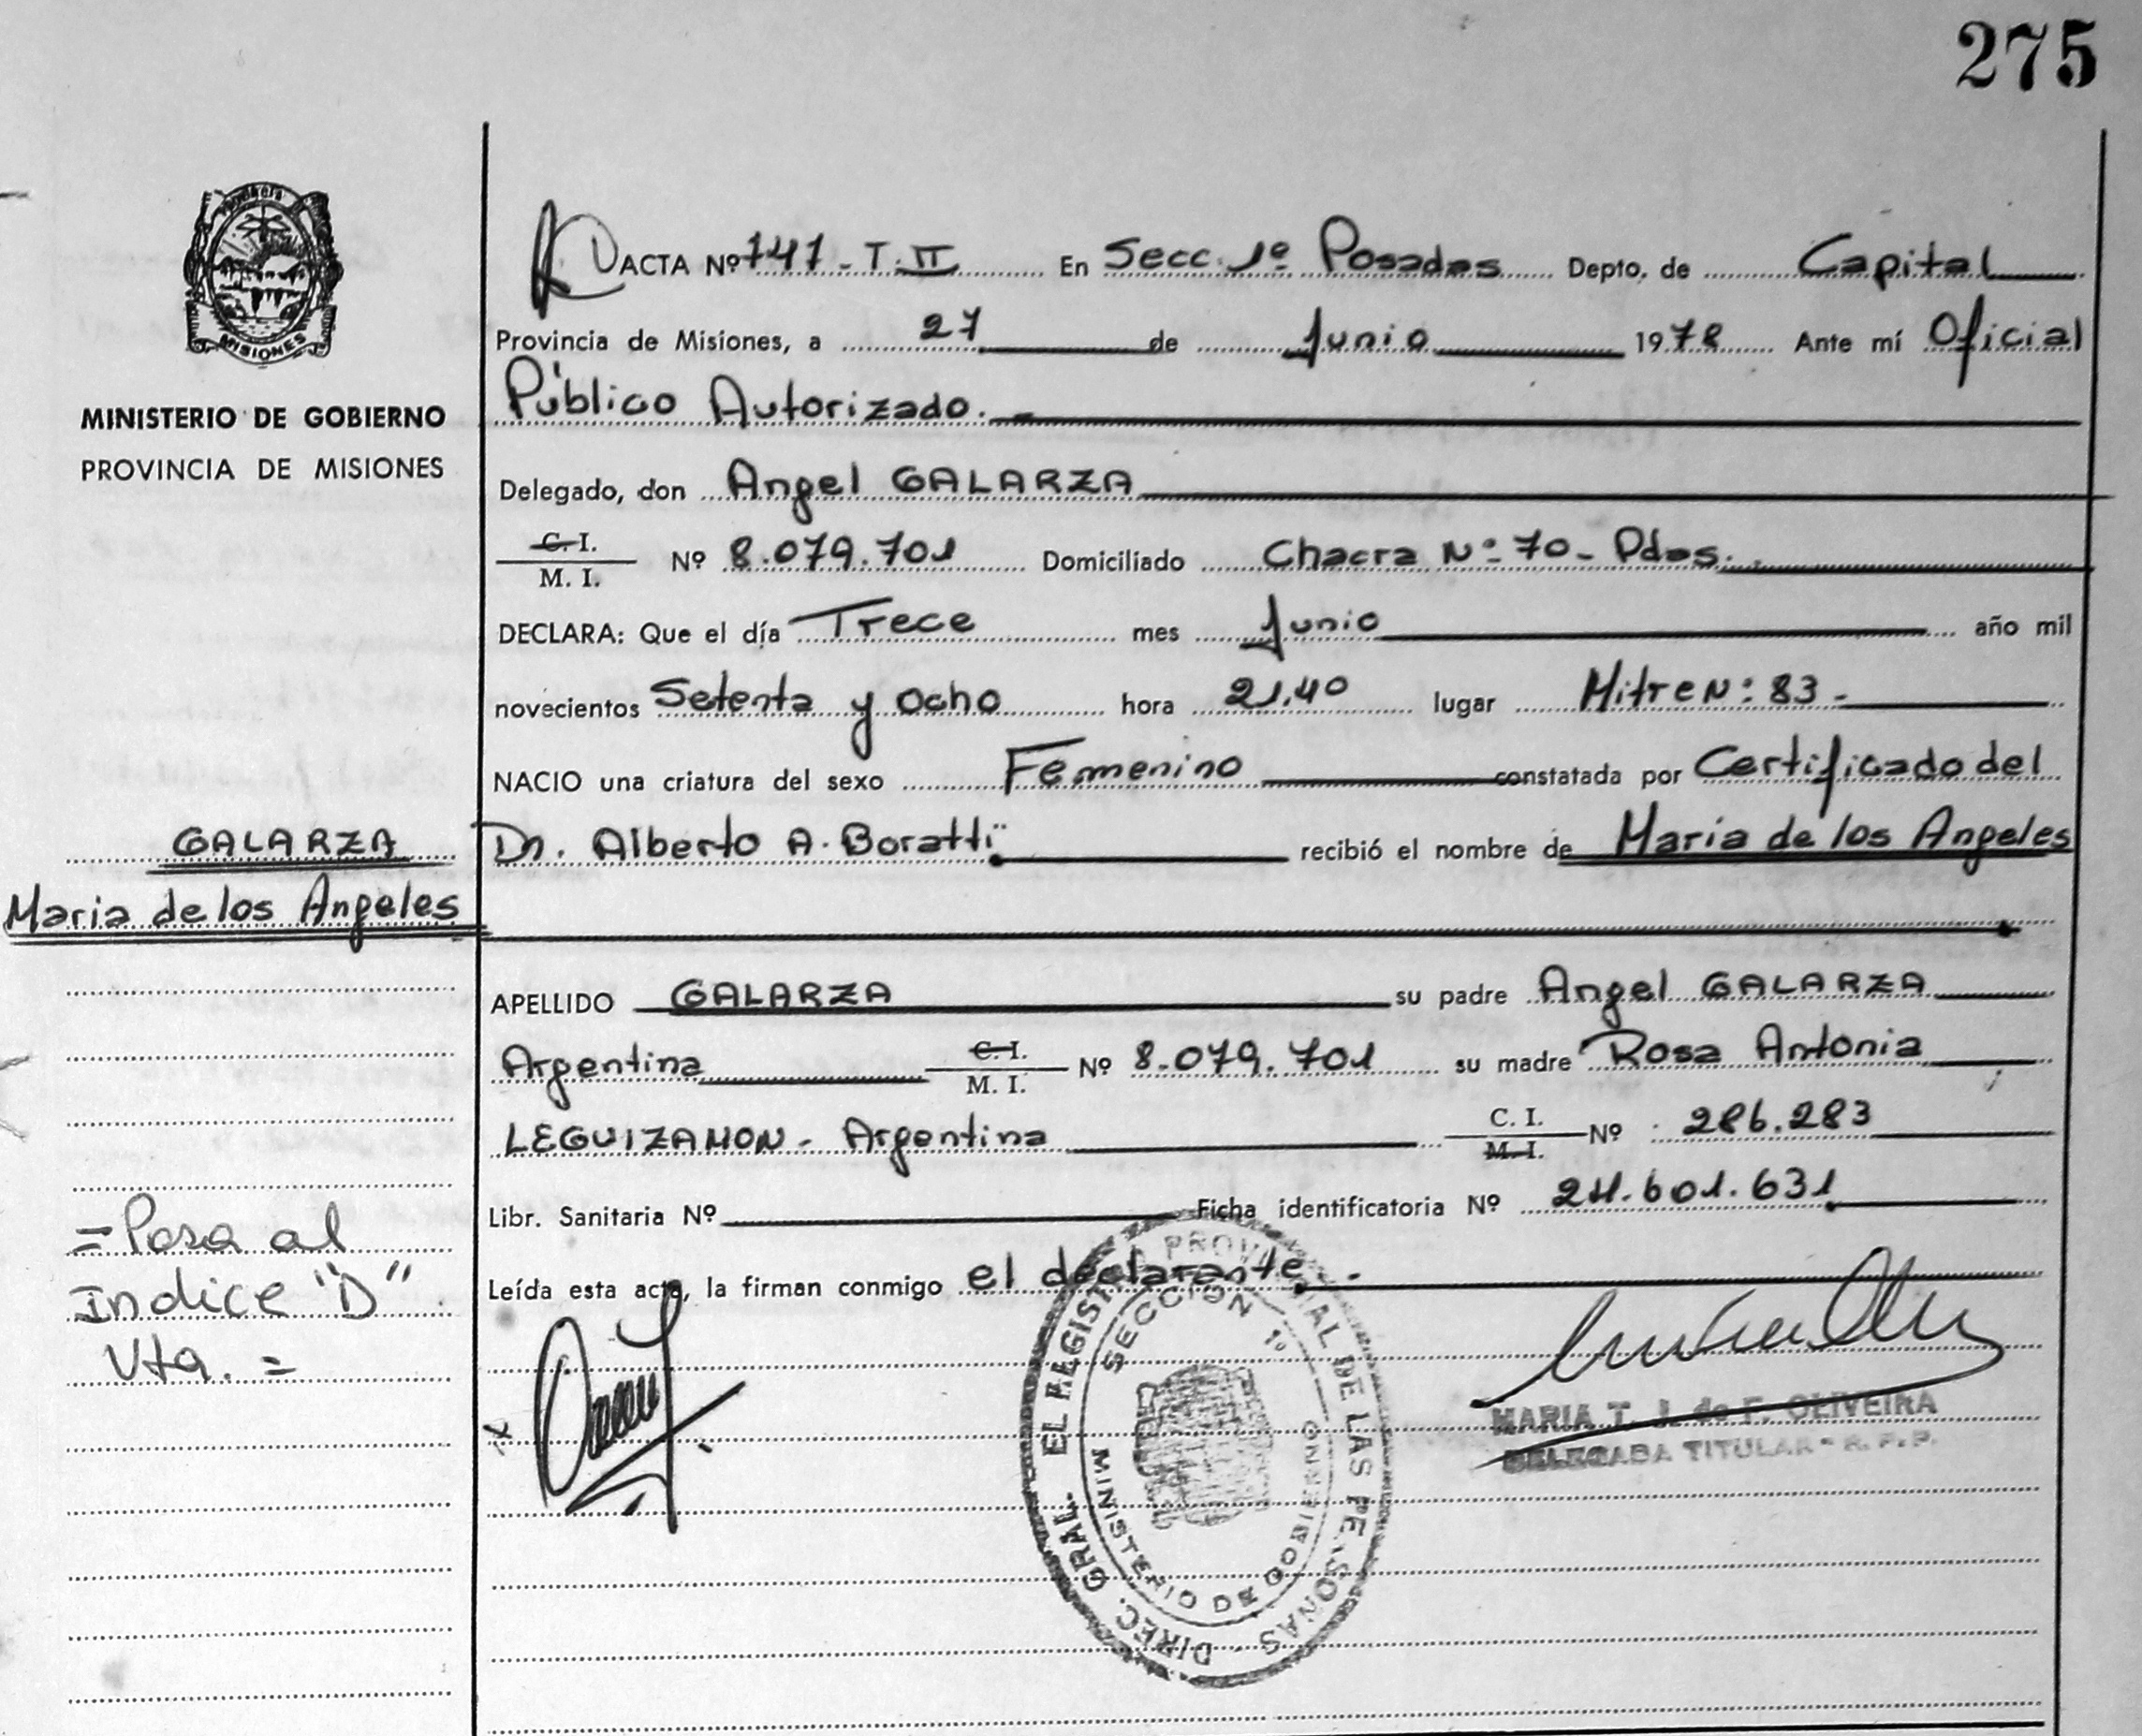 275
Provincia
MISIONES
MINISTERIO DE GOBIERNO
PROVINCIA DE MISIONES
ACTA Nº 741 - T. II En Secc. 1º Posadas Depto. de Capital
Provincia de Misiones, a 27 de Junio 1978 Ante mí Oficial
Público Autorizado.
Delegado, don Angel GALARZA
C. I.
M. I. Nº 8.079.701 Domiciliado Chacra Nº 70 - Pdas.
DECLARA: Que el día Trece mes Junio año mil
novecientos Setenta y Ocho hora 21.40 lugar Mitre Nº 83 -
NACIO una criatura del sexo Femenino constatada por Certificado del
Dr. Alberto A. Boratti recibió el nombre de Maria de los Angeles
GALARZA
Maria de los Angeles
APELLIDO GALARZA su padre Angel GALARZA
Argentina C. I.
M. I. Nº 8.079.701 su madre Rosa Antonia
LEGUIZAMON - Argentina C. I.
M. I. Nº 286.283
Libr. Sanitaria Nº Ficha identificatoria Nº 24.601.631
Leída esta acta, la firman conmigo el declarante. -
= Pasa al
Indice "D"
Vta. =
DIREC. GRAL. EL REGISTRO PROVINCIAL DE LAS PERSONAS
SECCION 1º
MINISTERIO DE GOBIERNO
MARIA T. J. de F. OLIVEIRA
DELEGADA TITULAR - R. P. P.